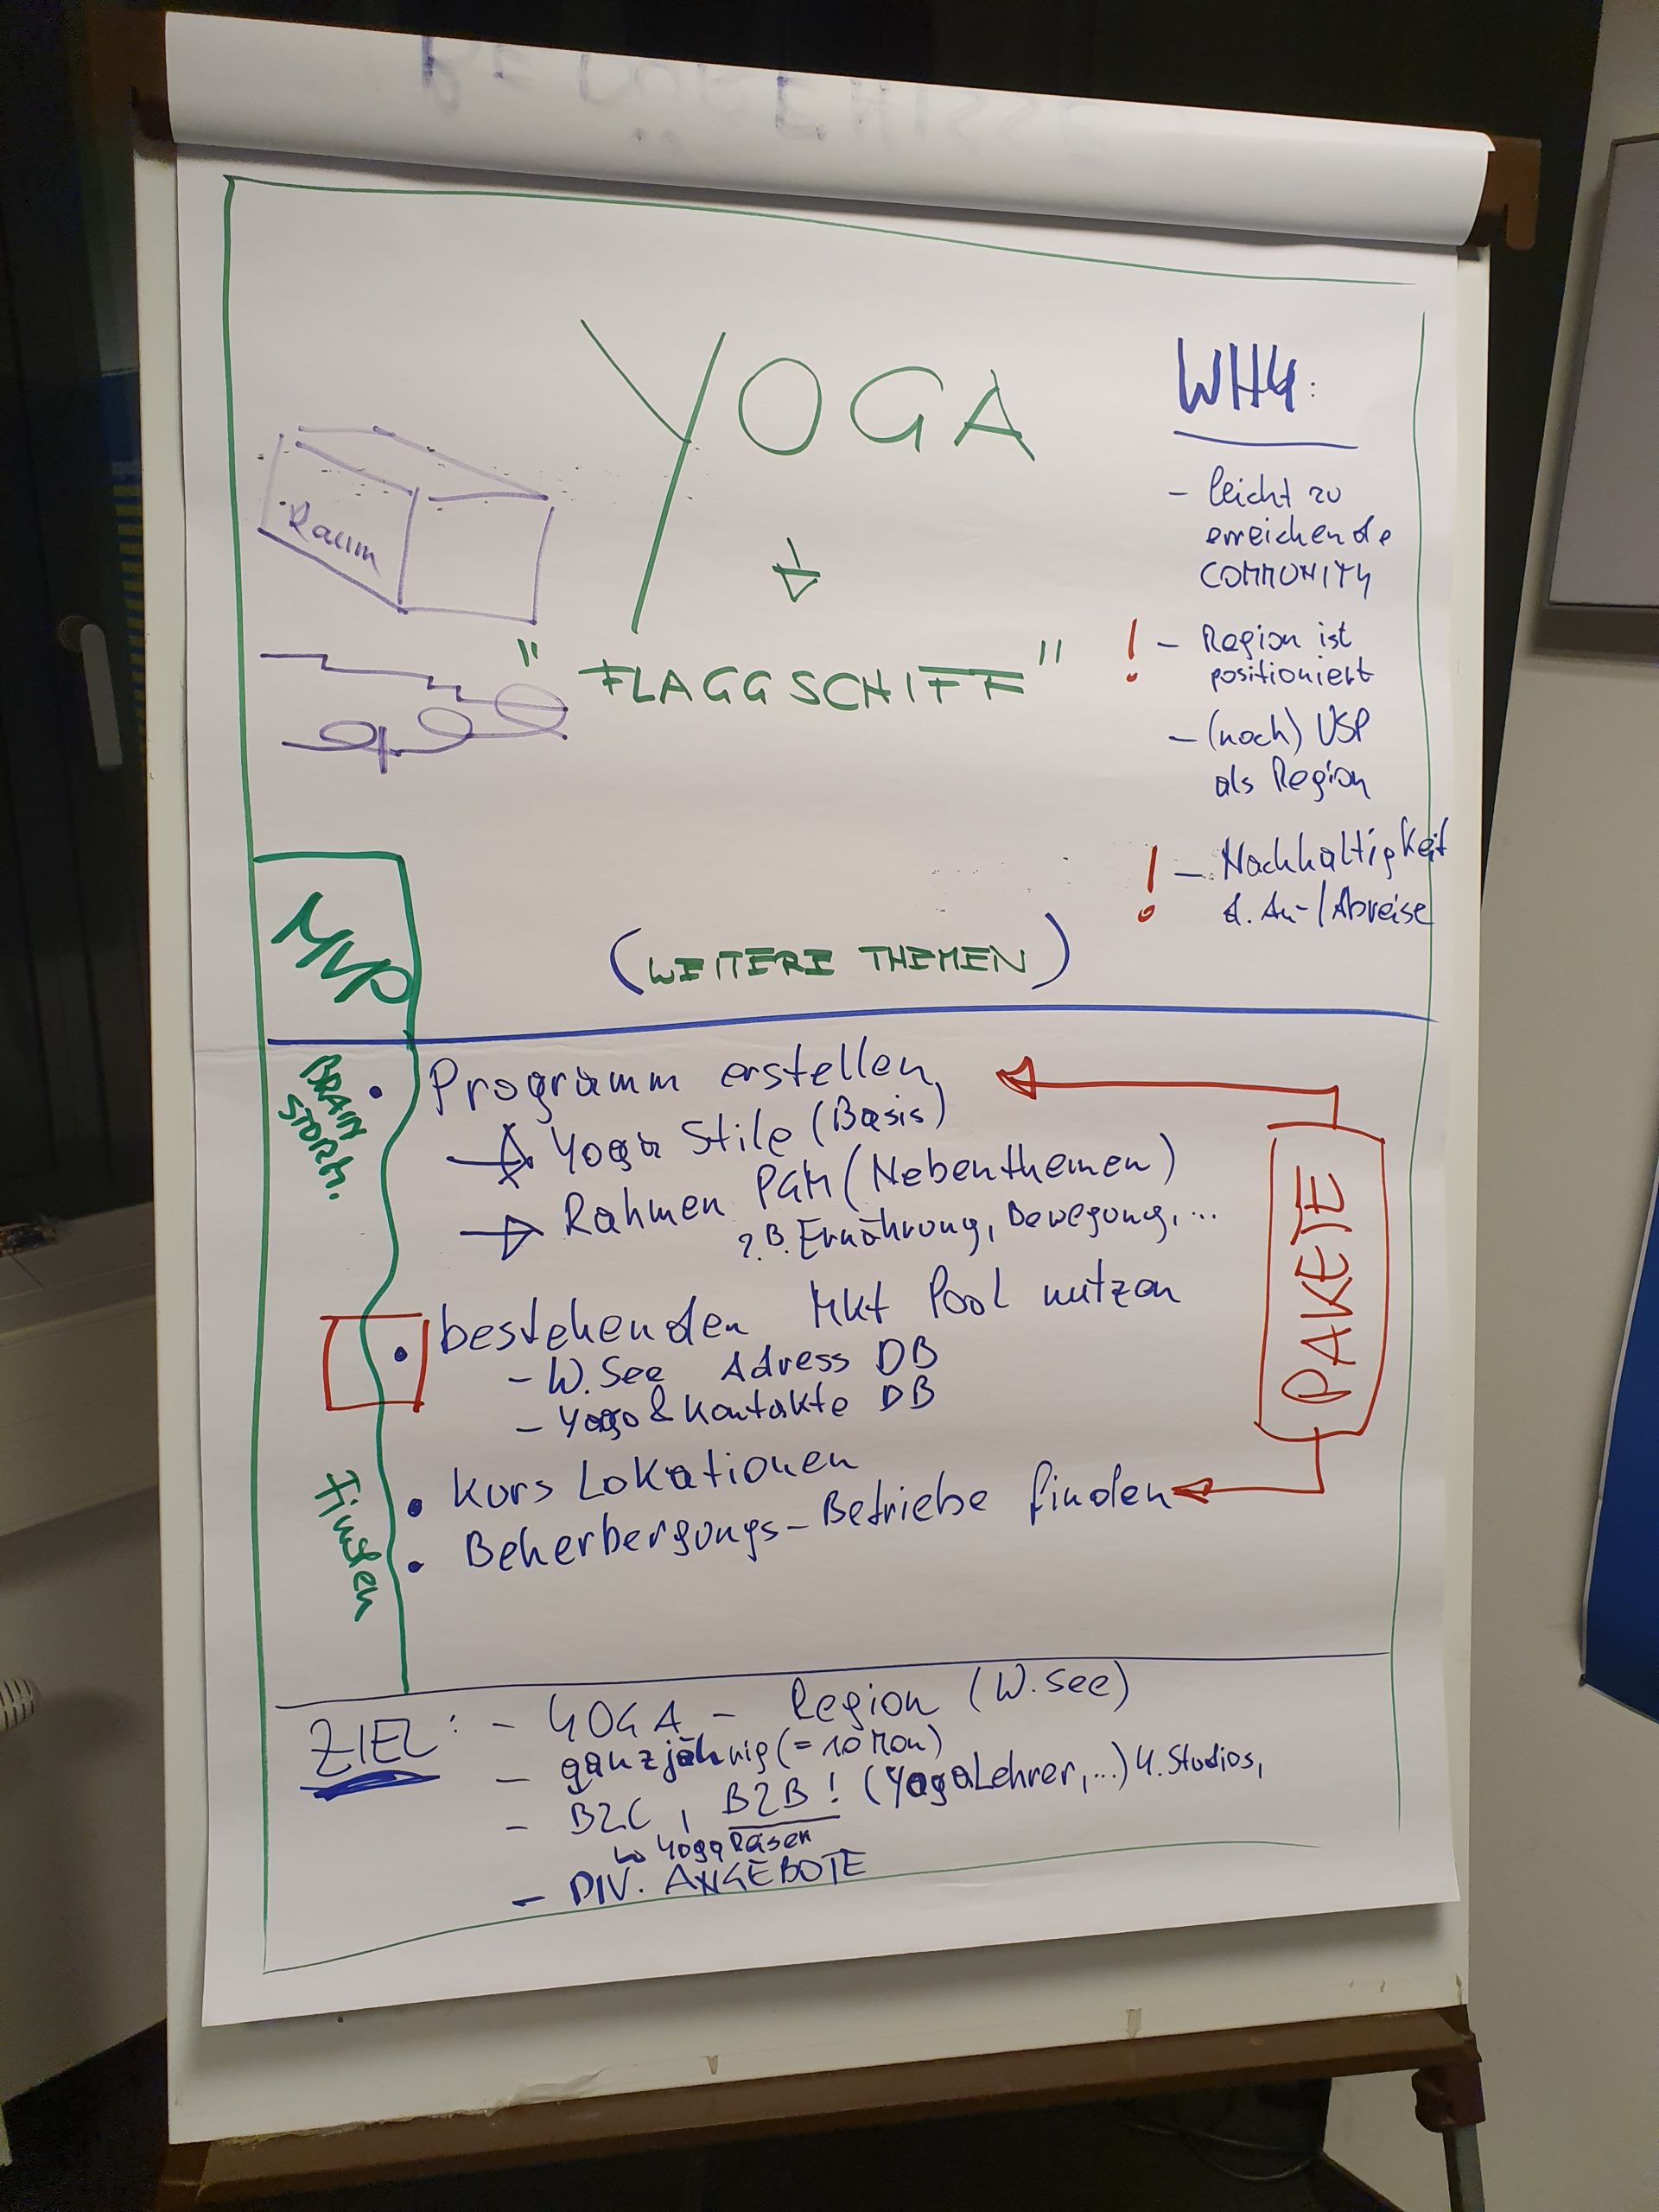 YOGA
"FLAGGSCHIFF"
(WEITERE THEMEN)
Raum
WHY:
- leicht zu
erreichende
COMMUNITY
! - Region ist
positioniert
- (noch) USP
als Region
! - Nachhaltigkeit
d. An-/Abreise
MVP
BRAIN
STORM.
• Programm erstellen
Yoga Stile (Basis)
Rahmen PGM (Nebenthemen)
z.B. Ernährung, Bewegung, ...
• bestehenden Mkt Pool nutzen
- W.See Adress DB
- Yoga & Kontakte DB
Finden
• Kurs Lokationen
• Beherbergungs-Betriebe finden
PAKETE
ZIEL: - YOGA - Region (W.See)
- ganzjährig (= 10 Mon)
- B2C, B2B! (YogaLehrer, ...) Y. Studios,
Yoga Reisen
- DIV. ANGEBOTE